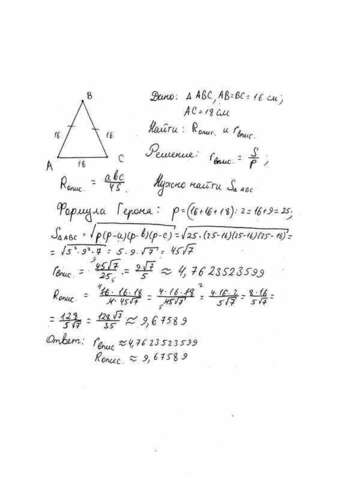 B
Дано: Δ ABC, AB=BC=16 см;
AC=18 см
16 16
Найти: Rопис. и rвпис.
A 18 C
Решение: rвпис. = S/p ;
Rопис. = abc/4S . Нужно найти SΔABC
Формула Герона: p=(16+16+18):2=16+9=25;
SΔABC=√p(p-a)(p-b)(p-c)=√25·(25-16)(25-16)(25-18)=
=√5²·9²·7 = 5·9·√7 = 45√7
rвпис. = 45√7/25 = 9√7/5 ≈ 4,7623523599
Rопис. = 16·16·18/4·45√7 = 4·16·18/45√7 = 4·16·2/5√7 = 8·16/5√7 =
= 128/5√7 = 128√7/35 ≈ 9,67589
Ответ: rвпис ≈4,7623523599
Rопис. ≈ 9,67589